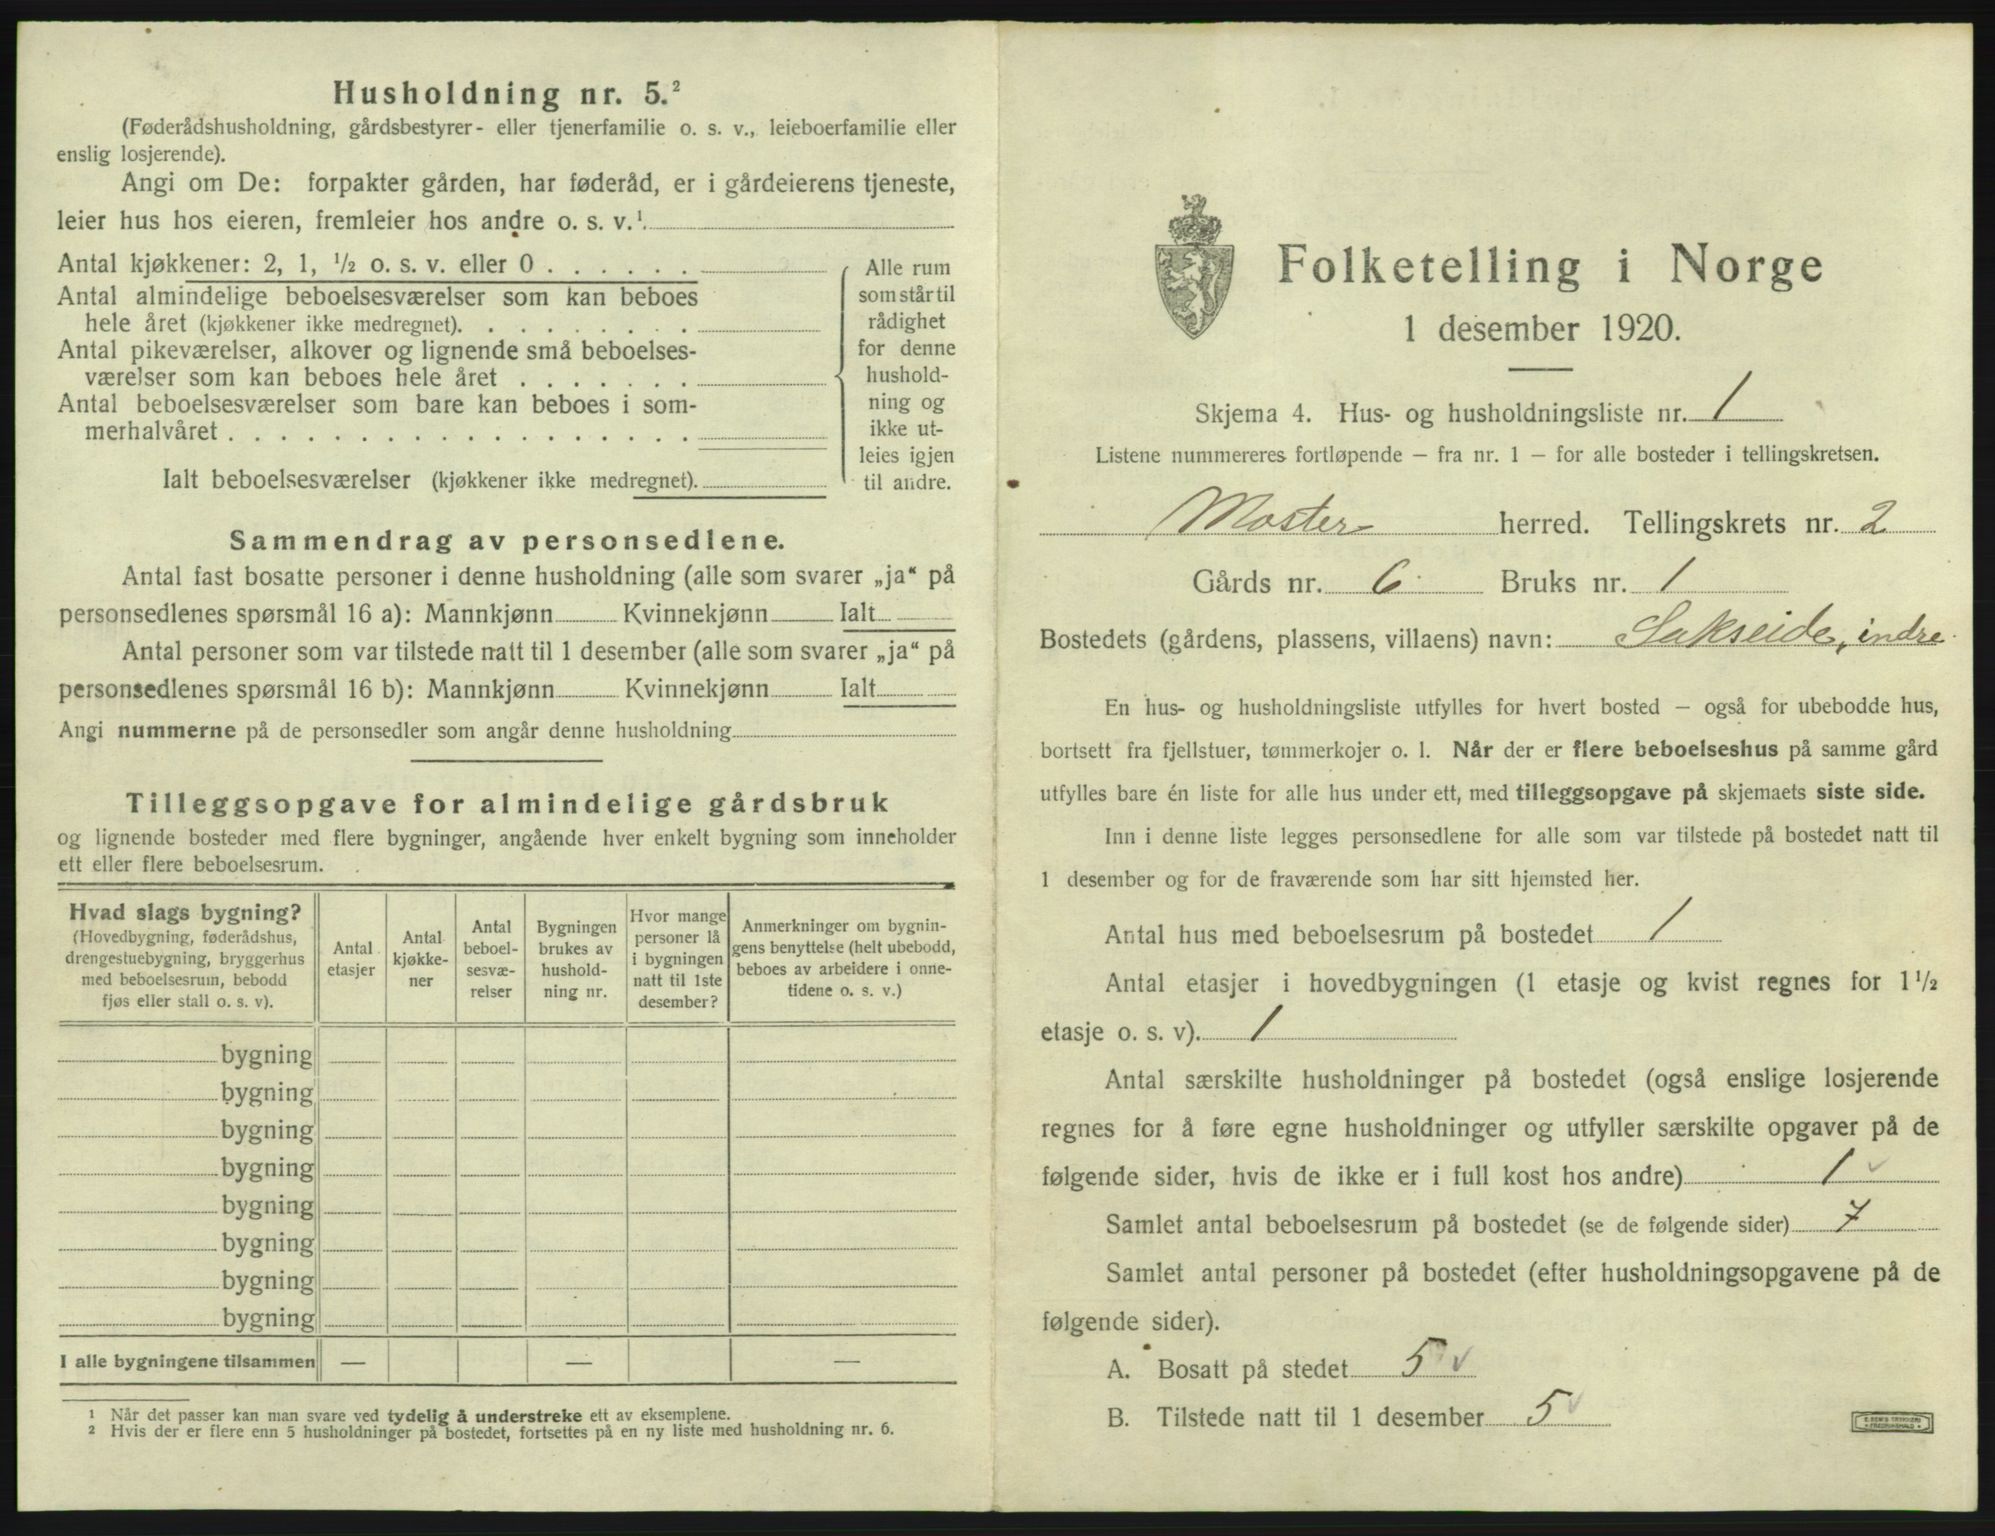 Husholdning nr. 5.²
(Føderådshusholdning, gårdsbestyrer- eller tjenerfamilie o. s. v., leieboerfamilie eller
enslig losjerende).
Angi om De: forpakter gården, har føderåd, er i gårdeierens tjeneste,
leier hus hos eieren, fremleier hos andre o. s. v.¹
Antal kjøkkener: 2, 1, ½ o. s. v. eller 0 . . . . . .
Antal almindelige beboelsesværelser som kan beboes
hele året (kjøkkener ikke medregnet). . . . . . . . .
Antal pikeværelser, alkover og lignende små beboelses-
værelser som kan beboes hele året . . . . . . .
Antal beboelsesværelser som bare kan beboes i som-
merhalvåret . . . . . . . . . . . . . . . . . .
Ialt beboelsesværelser (kjøkkener ikke medregnet).
Alle rum
som står til
rådighet
for denne
hushold-
ning og
ikke ut-
leies igjen
til andre.
Sammendrag av personsedlene.
Antal fast bosatte personer i denne husholdning (alle som svarer „ja“ på
personsedlenes spørsmål 16 a): Mannkjønn Kvinnekjønn Ialt
Antal personer som var tilstede natt til 1 desember (alle som svarer „ja“ på
personsedlenes spørsmål 16 b): Mannkjønn Kvinnekjønn Ialt
Angi nummerne på de personsedler som angår denne husholdning
Tilleggsopgave for almindelige gårdsbruk
og lignende bosteder med flere bygninger, angående hver enkelt bygning som inneholder
ett eller flere beboelsesrum.
Hvad slags bygning?
(Hovedbygning, føderådshus,
drengestuebygning, bryggerhus
med beboelsesrum, bebodd
fjøs eller stall o. s. v).
Antal
etasjer
Antal
kjøkke-
ner
Antal
beboel-
sesvæ-
relser
Bygningen
brukes av
hushold-
ning nr.
Hvor mange
personer lå
i bygningen
natt til 1ste
desember?
Anmerkninger om bygnin-
gens benyttelse (helt ubebodd,
beboes av arbeidere i onne-
tidene o. s. v.)
bygning
bygning
bygning
bygning
bygning
bygning
bygning
bygning
I alle bygningene tilsammen — — —
¹ Når det passer kan man svare ved tydelig å understreke ett av eksemplene.
² Hvis der er flere enn 5 husholdninger på bostedet, fortsettes på en ny liste med husholdning nr. 6.
Folketelling i Norge
1 desember 1920.
Skjema 4. Hus- og husholdningsliste nr. 1
Listene nummereres fortløpende — fra nr. 1 — for alle bosteder i tellingskretsen.
Moster herred. Tellingskrets nr. 2
Gårds nr. 6 Bruks nr. 1
Bostedets (gårdens, plassens, villaens) navn: Sakseide, indre
En hus- og husholdningsliste utfylles for hvert bosted — også for ubebodde hus,
bortsett fra fjellstuer, tømmerkojer o. l. Når der er flere beboelseshus på samme gård
utfylles bare én liste for alle hus under ett, med tilleggsopgave på skjemaets siste side.
Inn i denne liste legges personsedlene for alle som var tilstede på bostedet natt til
1 desember og for de fraværende som har sitt hjemsted her.
Antal hus med beboelsesrum på bostedet 1
Antal etasjer i hovedbygningen (1 etasje og kvist regnes for 1½
etasje o. s. v). 1
Antal særskilte husholdninger på bostedet (også enslige losjerende
regnes for å føre egne husholdninger og utfyller særskilte opgaver på de
følgende sider, hvis de ikke er i full kost hos andre) 1 ✓
Samlet antal beboelsesrum på bostedet (se de følgende sider) 7
Samlet antal personer på bostedet (efter husholdningsopgavene på de
følgende sider).
A. Bosatt på stedet 5 ✓
B. Tilstede natt til 1 desember 5 ✓